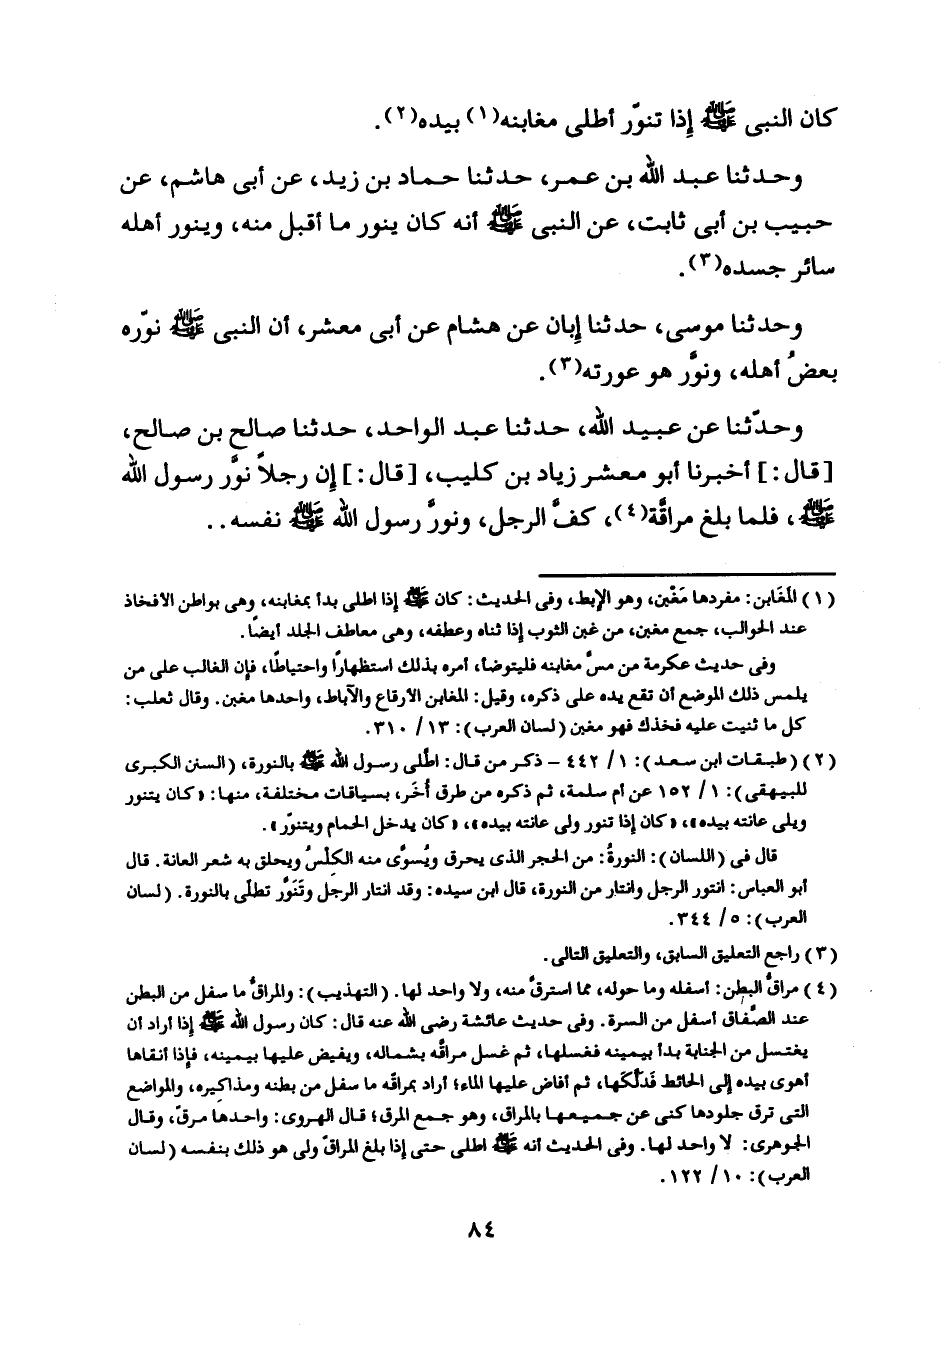 كان النبى ﷺ إذا تنوّر أطلى مغابنه(١) بيده(٢).
وحدثنا عبد الله بن عمر، حدثنا حماد بن زيد، عن أبى هاشم، عن
حبيب بن أبى ثابت، عن النبى ﷺ أنه كان ينور ما أقبل منه، وينور أهله
سائر جسده(٣).
وحدثنا موسى، حدثنا إبان عن هشام عن أبى معشر، أن النبى ﷺ نوّره
بعضُ أهله، ونوَّر هو عورته(٣).
وحدّثنا عن عبيد الله، حدثنا عبد الواحد، حدثنا صالح بن صالح،
[قال:] أخبرنا أبو معشر زياد بن كليب، [قال:] إن رجلاً نوَّر رسول الله
ﷺ، فلما بلغ مراقَّة(٤)، كفَّ الرجل، ونورَّ رسول الله ﷺ نفسه..
(١) المَغَابن: مفردها مَغْبِن، وهو الإبط، وفى الحديث: كان ﷺ إذا اطلى بدأ بمغابنه، وهى بواطن الافخاذ
عند الحوالب، جمع مغبن، من غبن الثوب إذا ثناه وعطفه، وهى معاطف الجلد أيضًا.
وفى حديث عكرمة من مسَّ مغابنه فليتوضأ، أمره بذلك استظهارًا واحتياطًا، فإن الغالب على من
يلمس ذلك الموضع أن تقع يده على ذكره، وقيل: المغابن الأرقاع والآباط، واحدها مغبن. وقال ثعلب:
كل ما ثنيت عليه فخذك فهو مغبن (لسان العرب): ١٣/ ٣١٠.
(٢) (طبقات ابن سعد): ١/ ٤٤٢ – ذكر من قال: اطَّلى رسول الله ﷺ بالنورة، (السنن الكبرى
للبيهقى): ١/ ١٥٢ عن أم سلمة، ثم ذكره من طرق أُخَر، بسياقات مختلفة، منها: «كان يتنور
ويلى عانته بيده»، «كان إذا تنور ولى عانته بيده»، «كان يدخل الحمام ويتنوّر».
قال فى (اللسان): النورةُ: من الحجر الذى يحرق ويُسوَّى منه الكِلْسُ ويحلق به شعر العانة. قال
أبو العباس: انتور الرجل وانتار من النورة، قال ابن سيده: وقد انتار الرجل وتَنَوَّر تطلَّى بالنورة. (لسان
العرب): ٥/ ٣٤٤.
(٣) راجع التعليق السابق، والتعليق التالى.
(٤) مراقُّ البطن: أسفله وما حوله، مما استرقَّ منه، ولا واحد لها. (التهذيب): والمراقُّ ما سفل من البطن
عند الصِّفاق أسفل من السرة. وفى حديث عائشة رضى الله عنه قال: كان رسول الله ﷺ إذا أراد أن
يغتسل من الجنابة بدأ بيمينه فغسلها، ثم غسل مراقَّه بشماله، ويفيض عليها بيمينه، فإذا أنقاها
أهوى بيده إلى الحائط فَدَلَّكَها، ثم أفاض عليها الماء؛ أراد بمراقه ما سفل من بطنه ومذاكيره، والمواضع
التى ترق جلودها كنى عن جميعها بالمراق، وهو جمع المرق؛ قال الهروى: واحدها مرقّ، وقال
الجوهرى: لا واحد لها. وفى الحديث أنه ﷺ اطلى حتى إذا بلغ المراقّ ولى هو ذلك بنفسه (لسان
العرب): ١٠/ ١٢٢.
٨٤